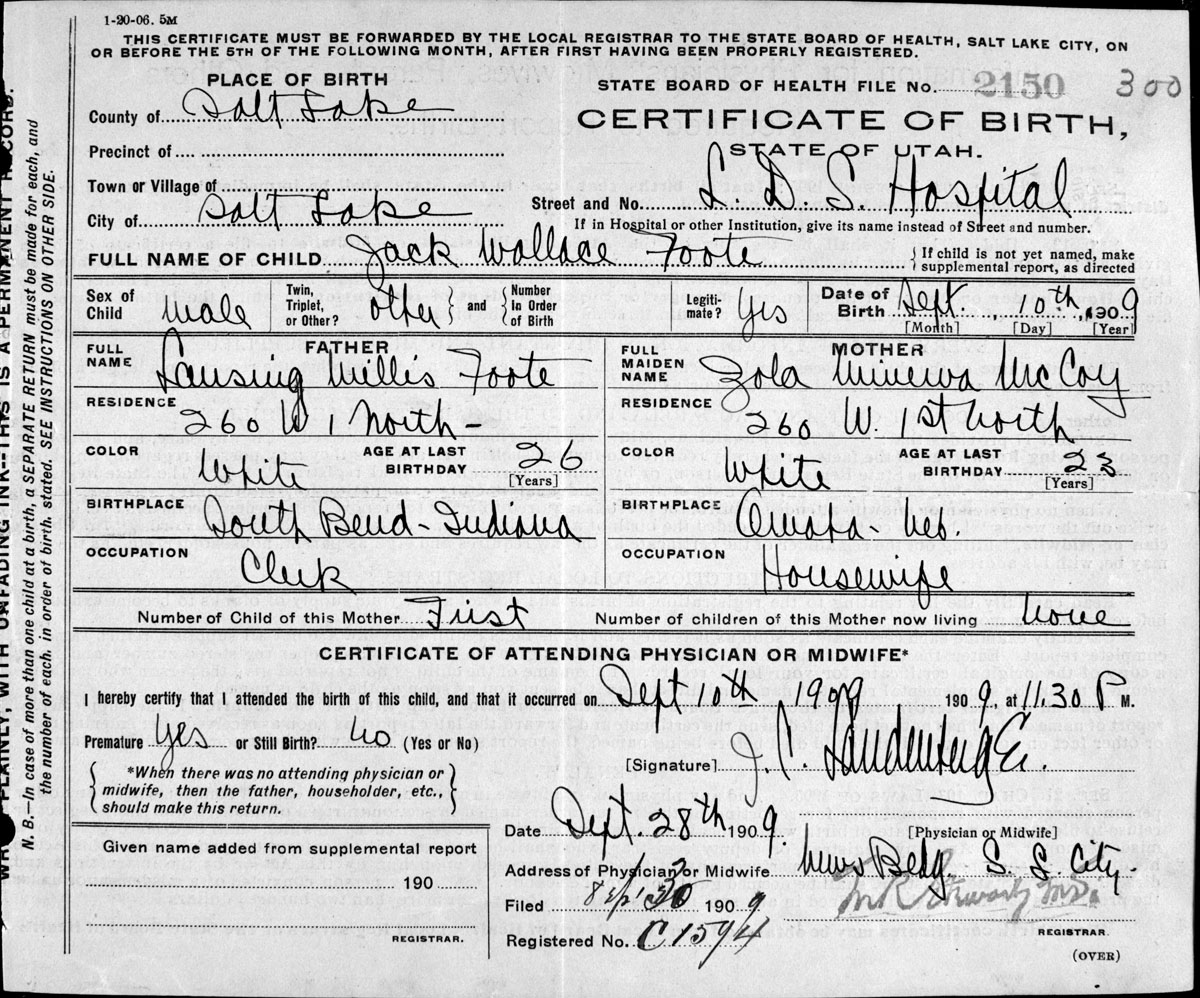 1-20-06. 5M
THIS CERTIFICATE MUST BE FORWARDED BY THE LOCAL REGISTRAR TO THE STATE BOARD OF HEALTH, SALT LAKE CITY, ON
OR BEFORE THE 5TH OF THE FOLLOWING MONTH, AFTER FIRST HAVING BEEN PROPERLY REGISTERED.
PLACE OF BIRTH
STATE BOARD OF HEALTH FILE No. 2150 300
County of Salt Lake
CERTIFICATE OF BIRTH,
STATE OF UTAH.
Precinct of
Town or Village of
Street and No. L. D. S. Hospital
City of Salt Lake
If in Hospital or other Institution, give its name instead of Street and number.
FULL NAME OF CHILD Jack Wallace Foote { If child is not yet named, make
supplemental report, as directed
Sex of Child Male Twin, Triplet, or Other? Other } and { Number in Order of Birth Legiti-mate? Yes Date of Birth Sept. 10th, 1909
[Month] [Day] [Year]
FATHER MOTHER
FULL NAME Lansing Willis Foote FULL MAIDEN NAME Zola Minerva McCoy
RESIDENCE 260 W 1 North - RESIDENCE 260 W. 1st North
COLOR White AGE AT LAST BIRTHDAY 26 [Years] COLOR White AGE AT LAST BIRTHDAY 23 [Years]
BIRTHPLACE South Bend - Indiana BIRTHPLACE Omaha - Neb.
OCCUPATION Clerk OCCUPATION Housewife
Number of Child of this Mother First Number of children of this Mother now living None
CERTIFICATE OF ATTENDING PHYSICIAN OR MIDWIFE*
I hereby certify that I attended the birth of this child, and that it occurred on Sept 10th 1909 1909, at 11.30 P M.
Premature Yes or Still Birth? No (Yes or No)
{ *When there was no attending physician or
midwife, then the father, householder, etc.,
should make this return. }
[Signature] J. C.
Date Sept. 28th 1909. [Physician or Midwife]
Given name added from supplemental report
Address of Physician or Midwife News Bldg. S. L. City.
190
Filed 30 1909
Registered No. C1594
REGISTRAR. REGISTRAR.
(OVER)
WRITE PLAINLY, WITH UNFADING INK—THIS IS A PERMANENT RECORD.
N. B.—In case of more than one child at a birth, a SEPARATE RETURN must be made for each, and
the number of each, in order of birth, stated. SEE INSTRUCTIONS ON OTHER SIDE.